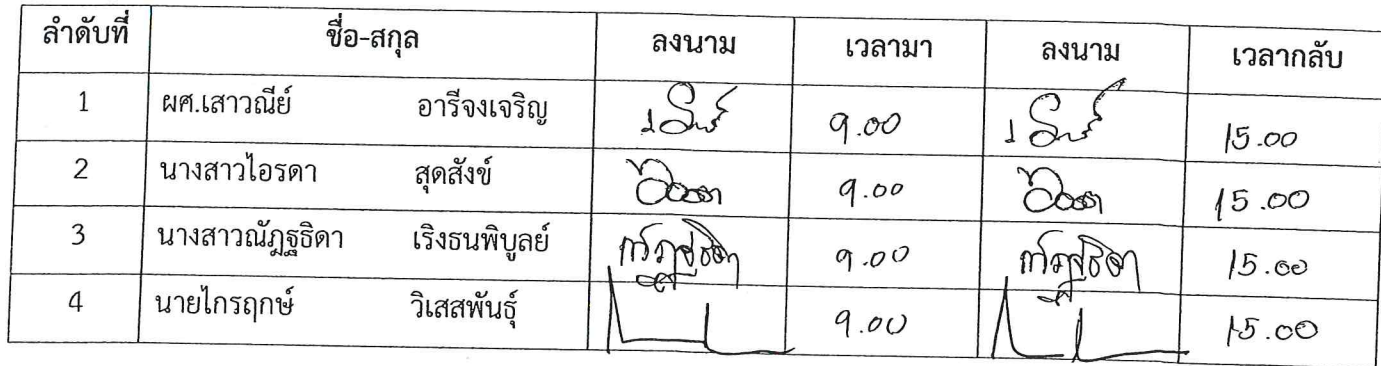 ลำดับที่ ชื่อ-สกุล ลงนาม เวลามา ลงนาม เวลากลับ
1 ผศ.เสาวณีย์ อารีจงเจริญ 9.00 15.00
2 นางสาวไอรดา สุดสังข์ 9.00 15.00
3 นางสาวณัฎฐธิดา เริงธนพิบูลย์ 9.00 15.00
4 นายไกรฤกษ์ วิเสสพันธุ์ 9.00 15.00